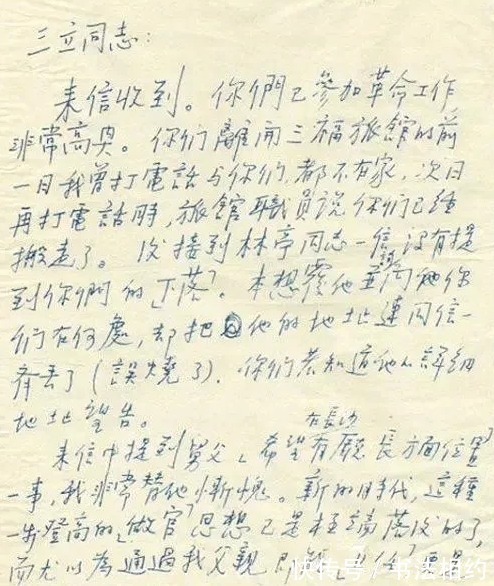 三立同志:
来信收到。你們已參加革命工作
非常高兴。你们離開三福旅館的前
一日我曾打電話与你们,都不在家,次日
再打電話時,旅館職員说你们已經
搬走了。後接到林亭同志一信,没有提
到你們的「下落」。本想覆他並詢問他你
們在何處,却把他的地址連同信一
齊丢了(誤燒了)。你们若知道他的詳細
地址望告。
在長沙
来信中提到舅父「希望有廳長方面位置」
一事,我非常替他慚愧。新的时代,這種
一步登高的「做官」思想已是極端落後的了,
而尤以為通過我父親即能
快传号/书法相约